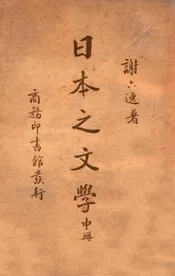 謝六逸著
日本之文學中冊
商務印書館發行